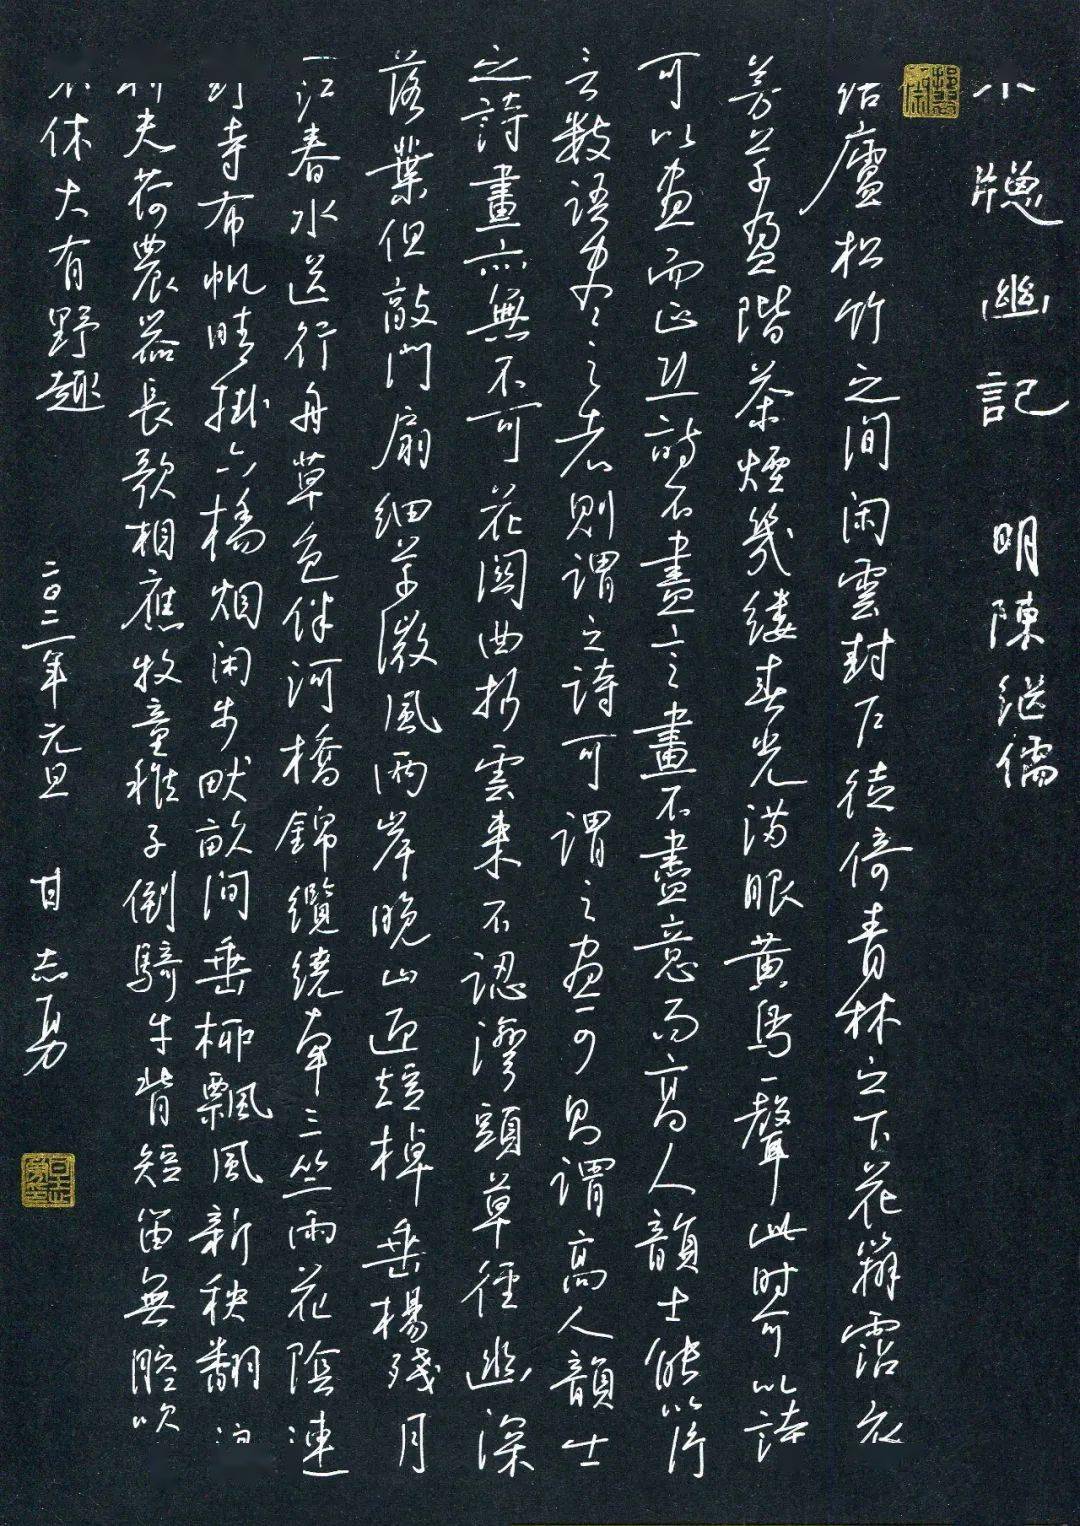 小牕幽記 明陳继儒
结廬松竹之间闲雲封户徒倚青林之下花瓣霑衣
芳草盈階茶煙幾缕春光满眼黄鳥一聲此时可以詩
可以画而正恐詩不盡言畫不盡意而高人韻士能以片
言数語盡之者则謂之詩可謂之画可则謂高人韻士
之詩畫亦無不可花関曲折雲来不認灣頭草徑幽深
落葉但敲門扇细草微風兩岸晚山迎短棹垂楊殘月
一江春水送行舟草色伴河橋錦纜繞牵三竺雨花陰連
野寺布帆晴掛六橋烟闲步畎畝间垂柳飄風新秧翻浪
耕夫荷農器長歌相應牧童稚子倒騎牛背短笛無腔吹
不休大有野趣 年元旦 甘志勇